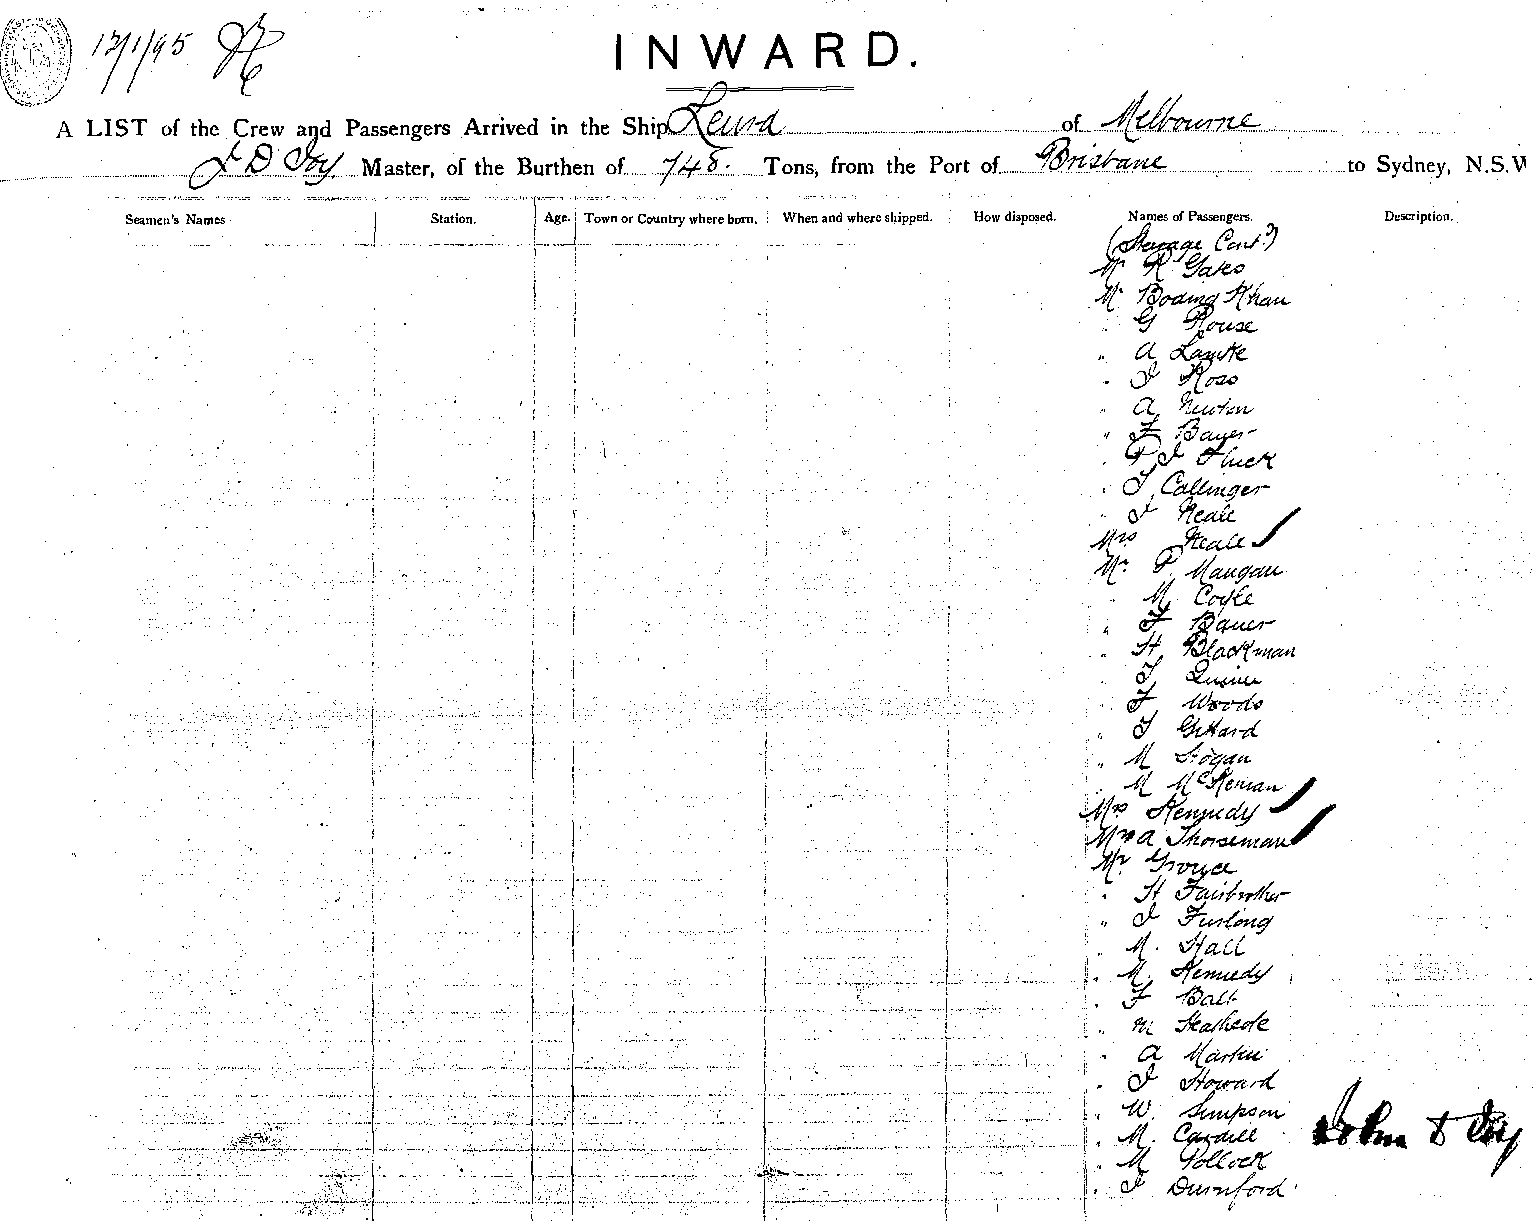 12/1/95
INWARD.
A LIST of the Crew and Passengers Arrived in the Ship Leura of Melbourne
J D Joy Master, of the Burthen of 748. Tons, from the Port of Brisbane to Sydney, N.S.W
Seamen's Names Station. Age. Town or Country where born. When and where shipped. How disposed. Names of Passengers. Description.
(Steerage Cont.d)
Mr R Gates
Mr Boding Khan
" G Rouse
" A Lawke
" J Ross
" A Newton
" F Bayer
" P J Fluck
" T Callinger
" J Neale
Mrs Neale
Mr. P. Mangan
" M Coyle
" F Bauer
" H Blackman
" T
" F Woods
" T Gittard
" M Hogan
" M McKernan
Mrs Kennedy
Mrs A Thorseman
Mr
" H Fairbrother
" J Furlong
" M. Hall
" M. Kennedy
" F Ball
" M Heathcote
" A Martin
" J Howard
" W. Simpson
" M. Cardill
John D Joy
" M Pollock
" J Durnford